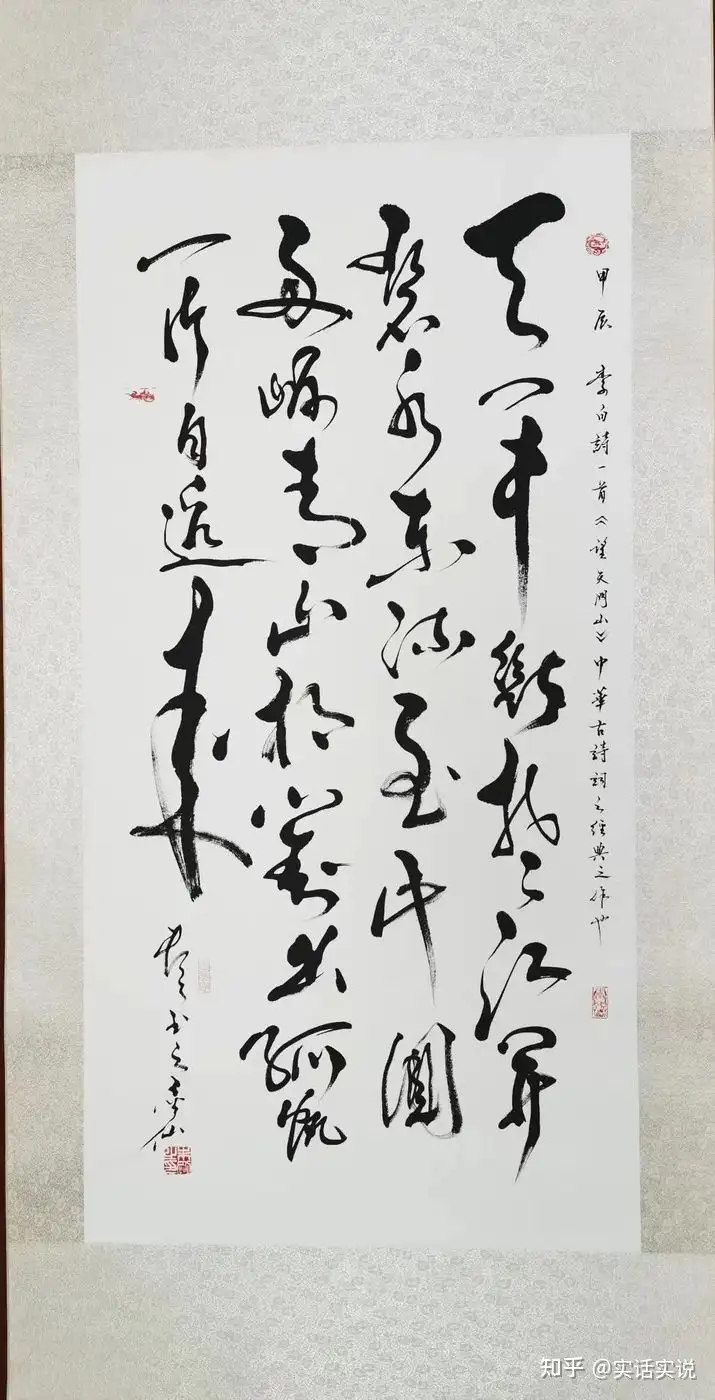 甲辰 李白詩一首《望天門山》中華古詩詞之經典之作也
天门中斷楚江開
碧水東流至此
兩岸青山相對出孤帆
一片日邊來
書之
知乎 @实话实说